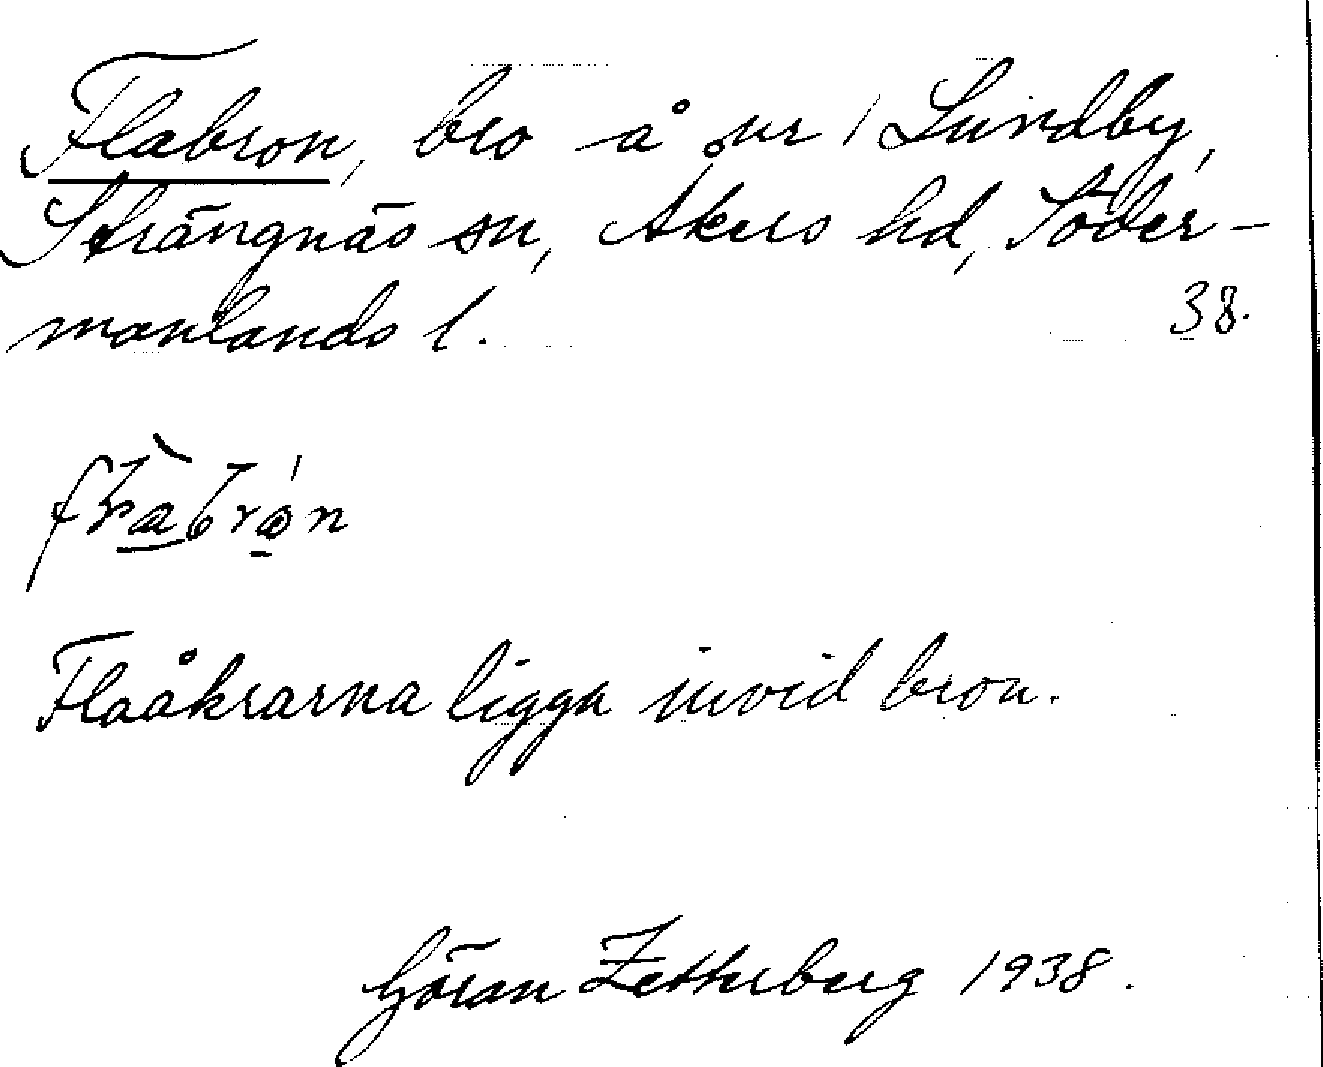 Flabron, bro å nr 1 Lundby,
Strängnäs sn, Åkers hd, Söder-
manlands l.
38.
Flaåkrarna ligga invid bron.
Göran Zetterberg 1938.